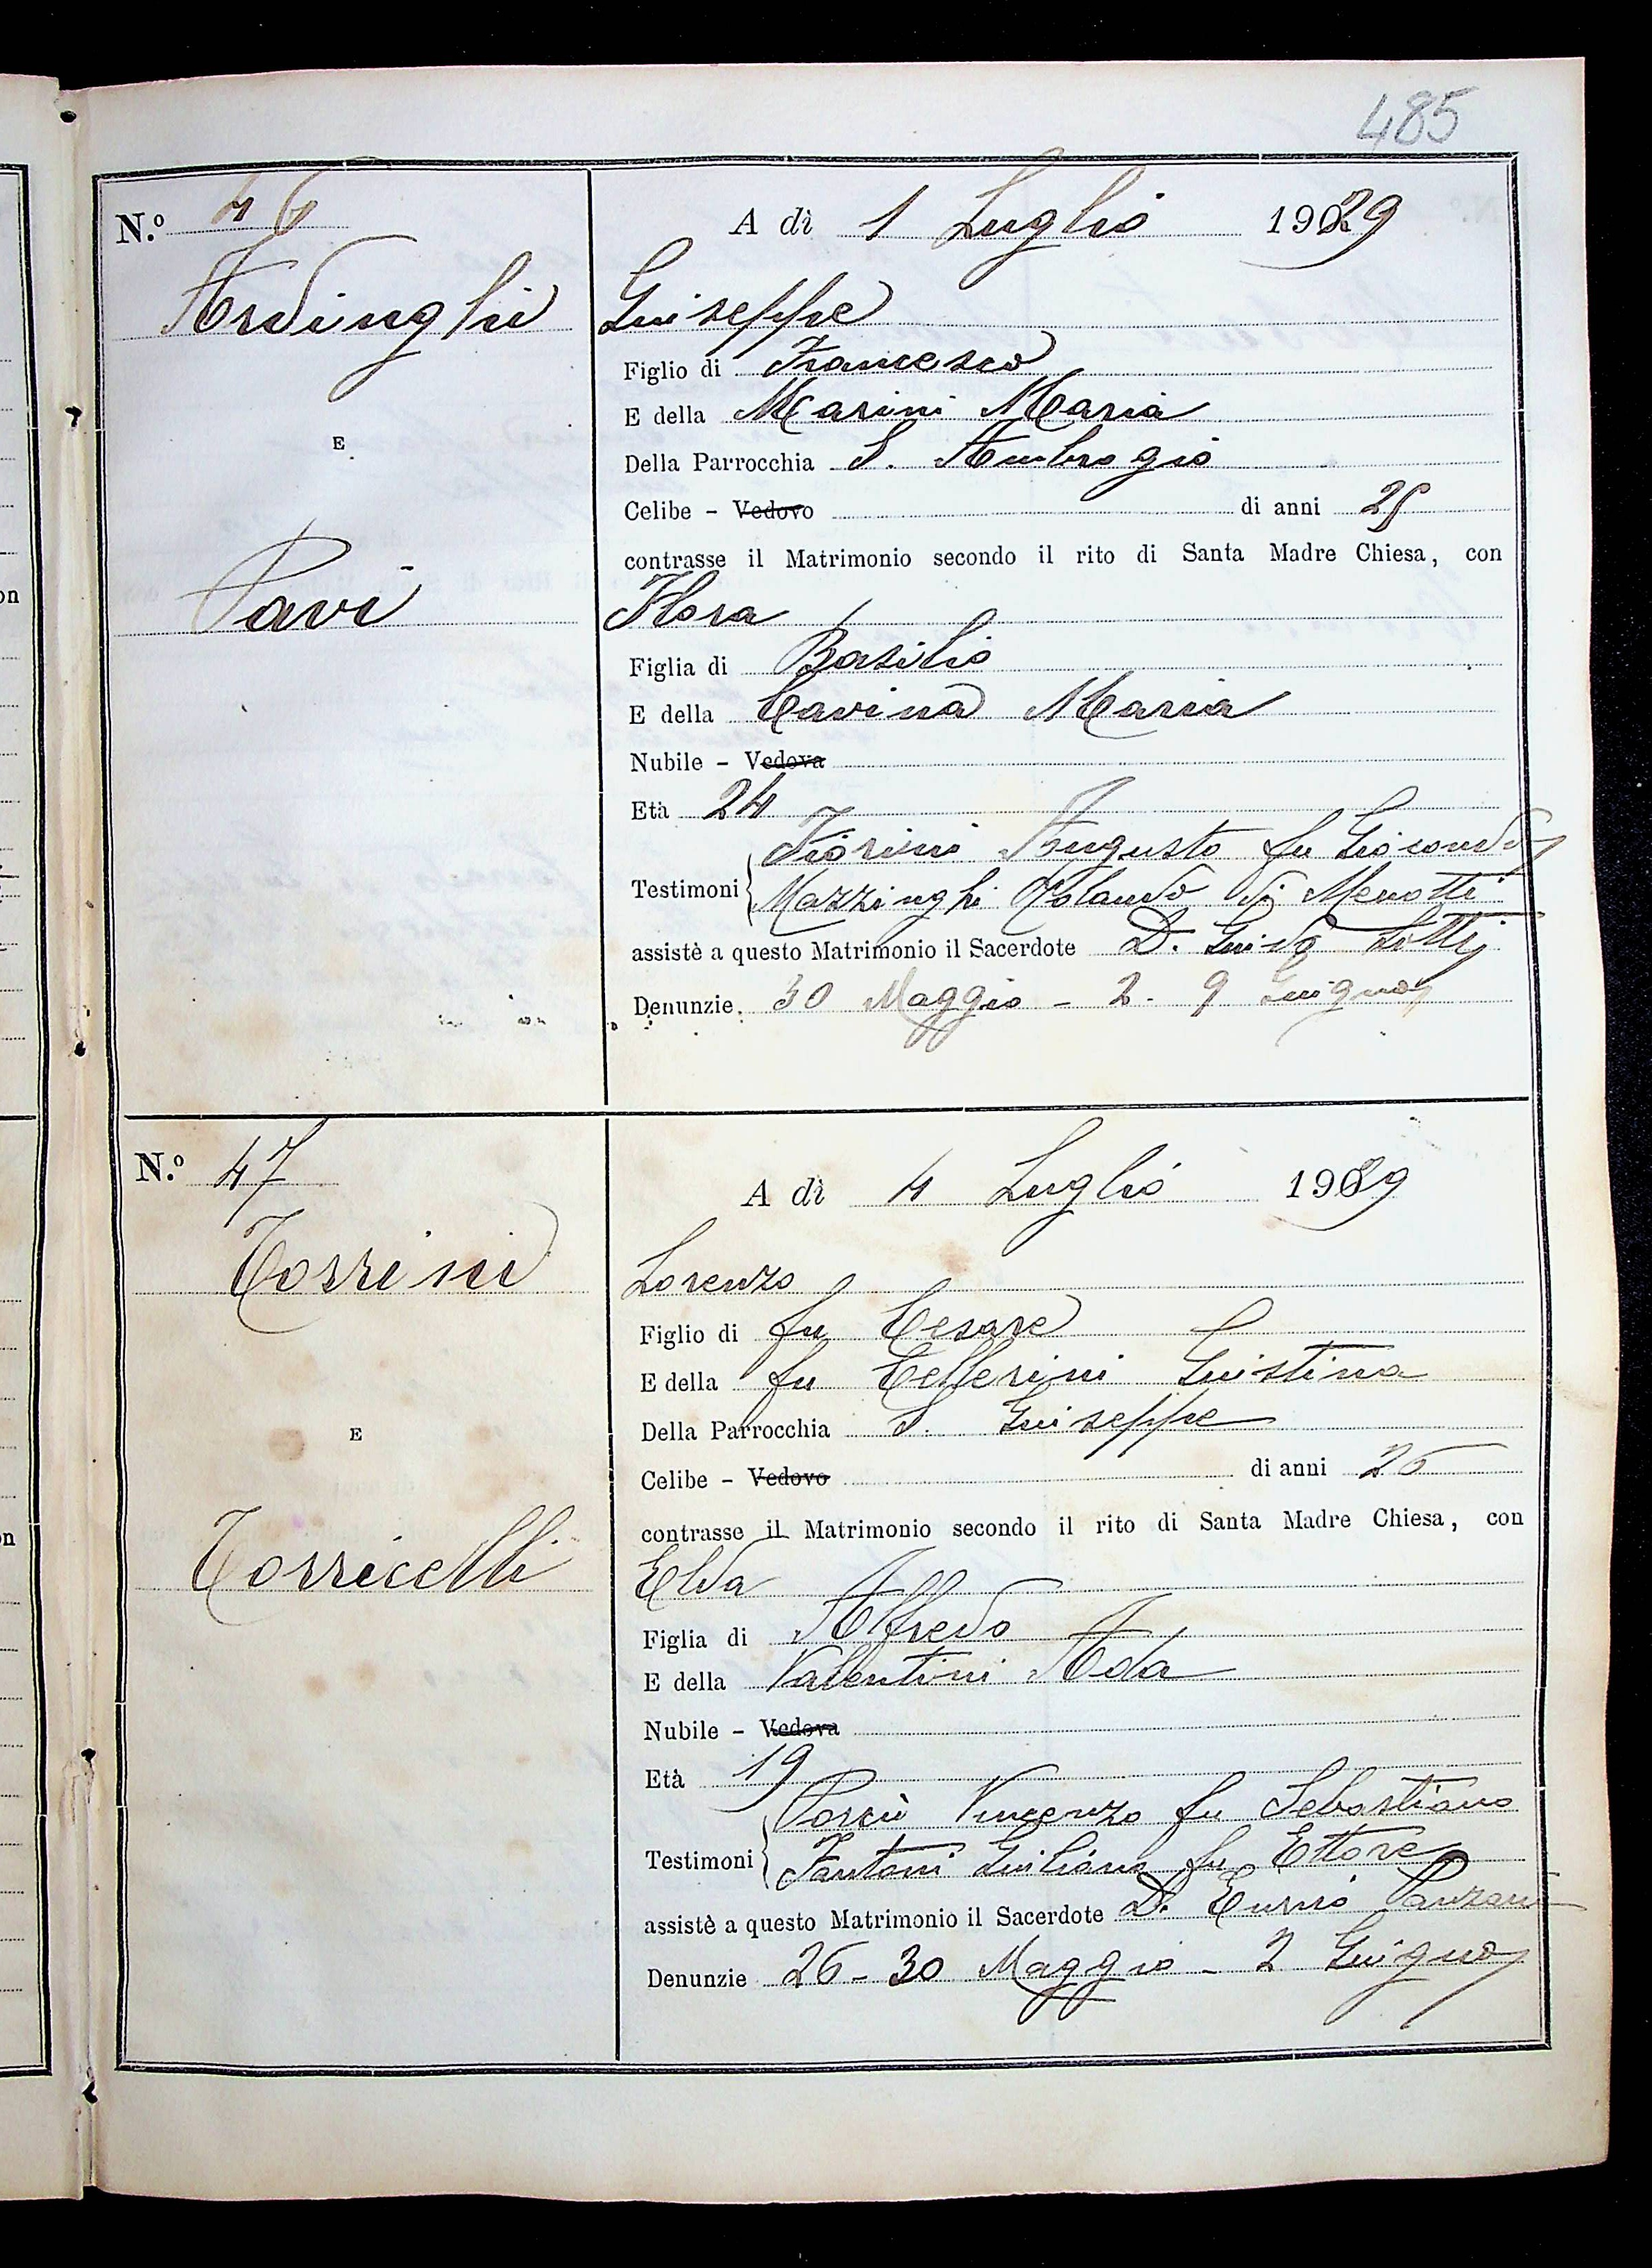 485
N.º 46
A dì 1 Luglio 1929
Ardinghi
Giuseppe
Figlio di Francesco
E della Marini Maria
E
Della Parrocchia S. Ambrogio
Celibe - Vedovo di anni 25
contrasse il Matrimonio secondo il rito di Santa Madre Chiesa, con
Pavi
Flora
Figlia di Basilio
E della Cavina Maria
Nubile - Vedova
Età 24
Fiorini Augusto fu Giocondo
Testimoni Mazzinghi Rolando di Menotti
assistè a questo Matrimonio il Sacerdote D. Guido Lotti
Denunzie 30 Maggio - 2 - 9 Giugno
N.º 47
A dì 4 Luglio 1929
Torrini
Lorenzo
Figlio di fu Cesare
E della fu Cellerini Giustina
Della Parrocchia S. Giuseppe
E
Celibe - Vedovo di anni 26
contrasse il Matrimonio secondo il rito di Santa Madre Chiesa, con
Torricelli
Elda
Figlia di Alfredo
E della Valentini Ada
Nubile - Vedova
Età 19
Porciù Vincenzo fu Sebastiano
Testimoni Fantoni Giuliano fu Ettore
assistè a questo Matrimonio il Sacerdote D. Ennio Panzani
Denunzie 26 - 30 Maggio - 2 Giugno